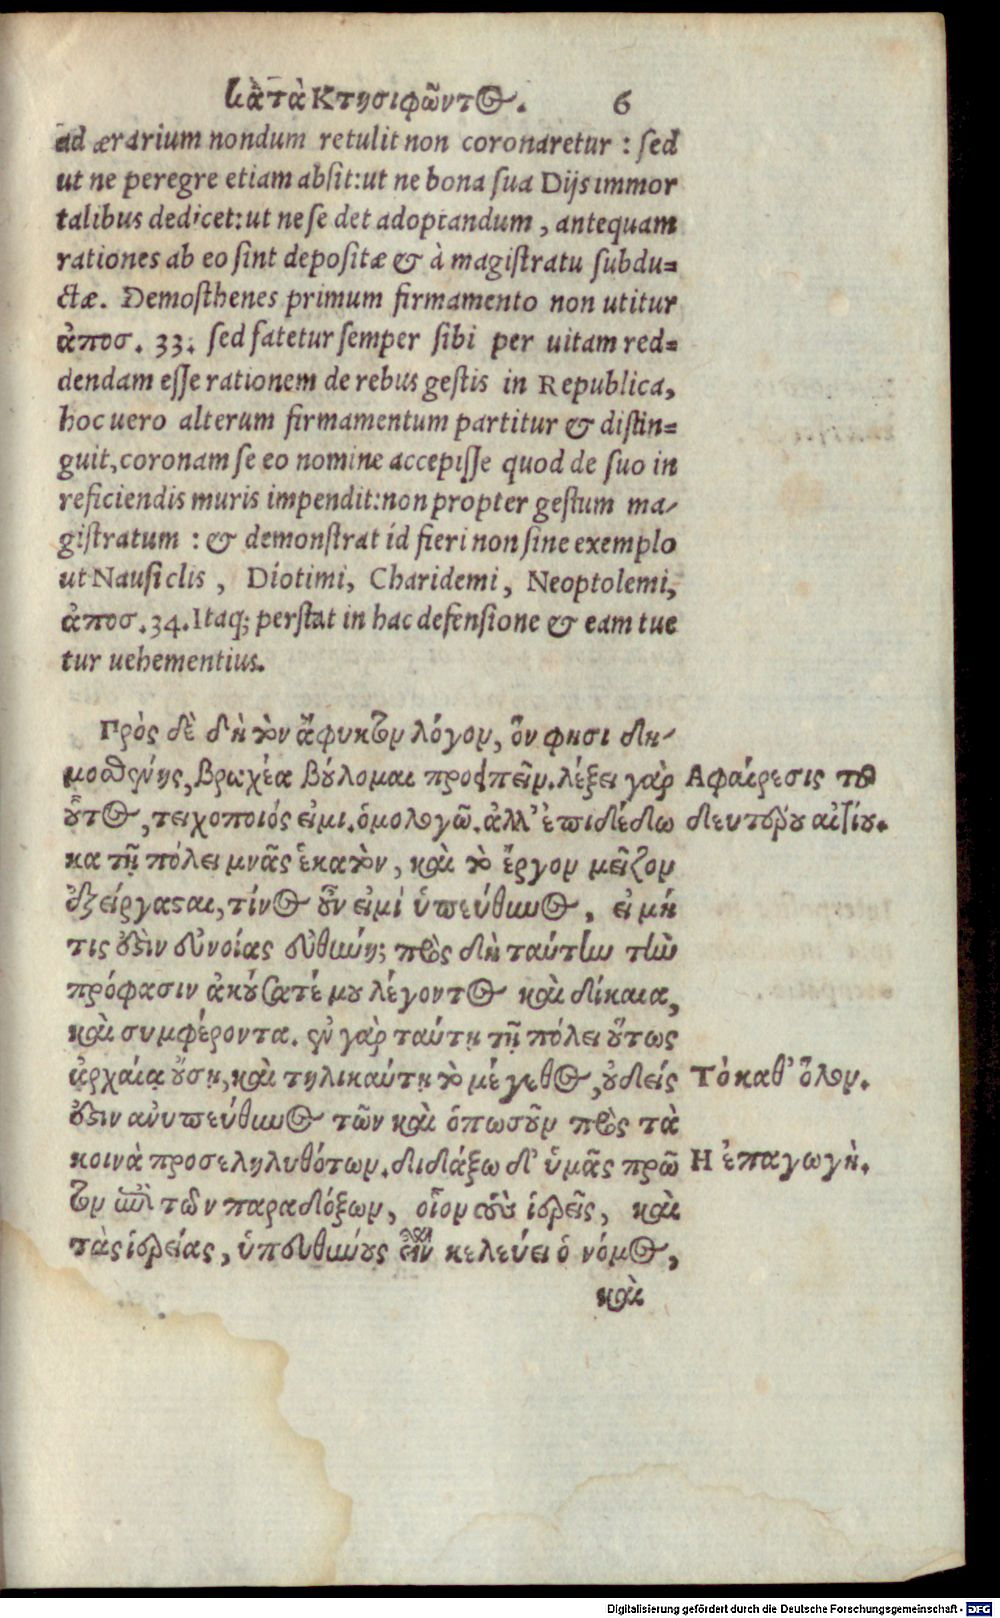 κατὰ Κτησιφῶντος. 6
ad ærarium nondum retulit non coronaretur : sed
ut ne peregre etiam absit: ut ne bona sua Dijs immor
talibus dedicet: ut ne se det adoptandum, antequam
rationes ab eo sint depositæ & à magistratu subdu=
ctæ. Demosthenes primum firmamento non utitur
ἀποσ. 33. sed fatetur semper sibi per uitam red=
dendam esse rationem de rebus gestis in Republica,
hoc uero alterum firmamentum partitur & distin=
guit, coronam se eo nomine accepisse quod de suo in
reficiendis muris impendit: non propter gestum ma-
gistratum : & demonstrat id fieri non sine exemplo
ut Nausiclis, Diotimi, Charidemi, Neoptolemi,
ἀποσ. 34. Itaq; perstat in hac defensione & eam tue
tur uehementius.
Πρὸς δὲ δὴ τὸν ἄφυκτον λόγον, ὅν φησι δη-
μοσθένης, βραχέα βούλομαι προσειπεῖν. λέξει γὰρ
οὗτος, τειχοποιός εἰμι. ὁμολογῶ. ἀλλ' ἐπιδέδω
κα τῇ πόλει μνᾶς ἑκατὸν, καὶ τὸ ἔργον μεῖζον
ἐξείργασται, τίνος οὖν εἰμί ὑπεύθυνος, εἰ μή
τις ἐστὶν εὐνοίας εὐθύνη; πρὸς δὴ ταύτην τὴν
πρόφασιν ἀκούσατέ μου λέγοντος καὶ δίκαια,
καὶ συμφέροντα. ἐν γὰρ ταύτῃ τῇ πόλει οὕτως
ἀρχαίᾳ οὔσῃ, καὶ τηλικαύτῃ τὸ μέγεθος, οὐδείς
ἐστιν ἀνυπεύθυνος τῶν καὶ ὁπωσοῦν πρὸς τὰ
κοινὰ προσεληλυθότων. διδάξω δ' ὑμᾶς πρῶ
τον ἐπὶ τῶν παραδόξων, οἷον τοὺς ἱερεῖς, καὶ
τὰς ἱερείας, ὑπευθύνους εἶναι κελεύει ὁ νόμος,
καὶ
Αφαίρεσις τοῦ
δευτέρου αἰτίου.
Τὸ καθ' ὅλον.
Η ἐπαγωγὴ.
Digitalisierung gefördert durch die Deutsche Forschungsgemeinschaft - DFG